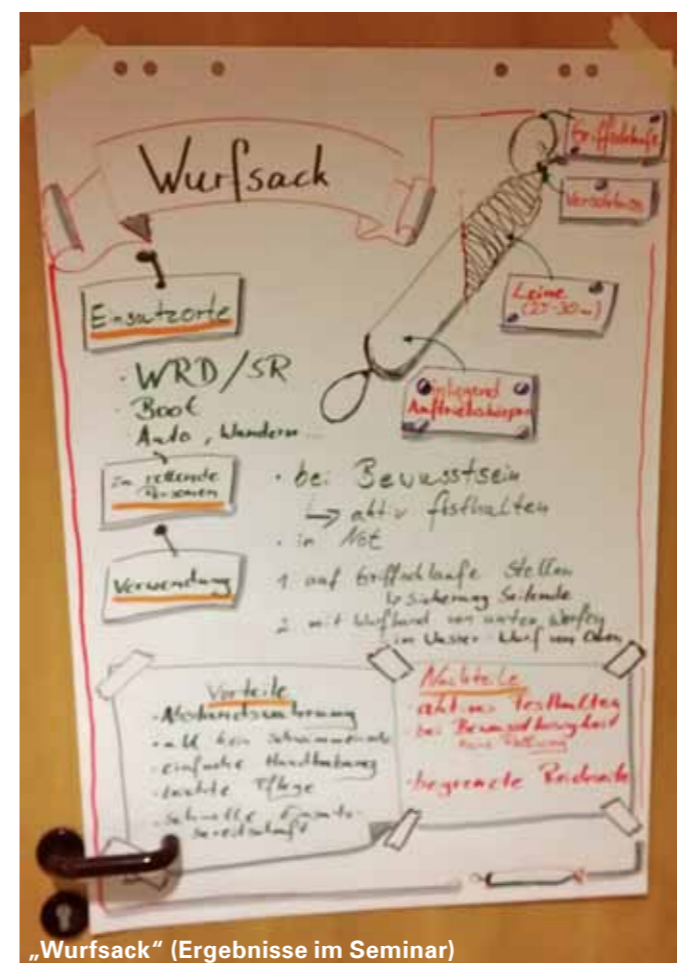 Wurfsack
Griffschlaufe
Verschluss
Leine
(25-30m)
Auftriebskörper
Einsatzorte
· WRD/SR
· Boot
· Auto, Wandern...
Zu rettende
Personen
· bei Bewusstsein
↳ aktiv festhalten
· in Not
Verwendung
1. auf Griffschlaufe stellen
↳ Sicherung Seilende
2. mit Wurfhand von unten werfen
im Wasser Wurf von Oben
Vorteile
· Abstandswahrung
· kein
· einfache Handhabung
· leichte Pflege
· schnelle Einsatz-
bereitschaft
Nachteile
· aktives Festhalten
· bei Bewusstlosigkeit
keine Rettung
· begrenzte Reichweite
„Wurfsack“ (Ergebnisse im Seminar)